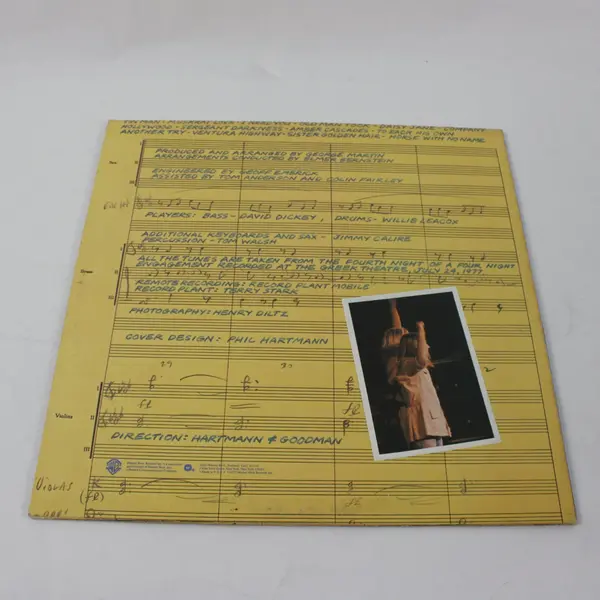 TIN MAN - MUSKRAT LOVE - I NEED YOU - OLD MAN TOOK - DAISY JANE - COMPANY
HOLLYWOOD - SERGEANT DARKNESS - AMBER CASCADES - TO EACH HIS OWN
ANOTHER TRY - VENTURA HIGHWAY - SISTER GOLDEN HAIR - HORSE WITH NO NAME
PRODUCED AND ARRANGED BY GEORGE MARTIN
ARRANGEMENTS CONDUCTED BY ELMER BERNSTEIN
ENGINEERED BY GEOFF EMERICK
ASSISTED BY TOM ANDERSON AND COLIN FAIRLEY
PLAYERS: BASS - DAVID DICKEY, DRUMS - WILLIE LEACOX
ADDITIONAL KEYBOARDS AND SAX - JIMMY CALIRE
PERCUSSION - TOM WALSH
ALL THE TUNES ARE TAKEN FROM THE FOURTH NIGHT OF A FOUR NIGHT
ENGAGEMENT RECORDED AT THE GREEK THEATRE, JULY 29, 1977
REMOTE RECORDING: RECORD PLANT MOBILE
RECORD PLANT: TERRY STARK
PHOTOGRAPHY: HENRY DILTZ
COVER DESIGN: PHIL HARTMANN
29
30
I
Violins II
III
DIRECTION: HARTMANN & GOODMAN
VIOLAS